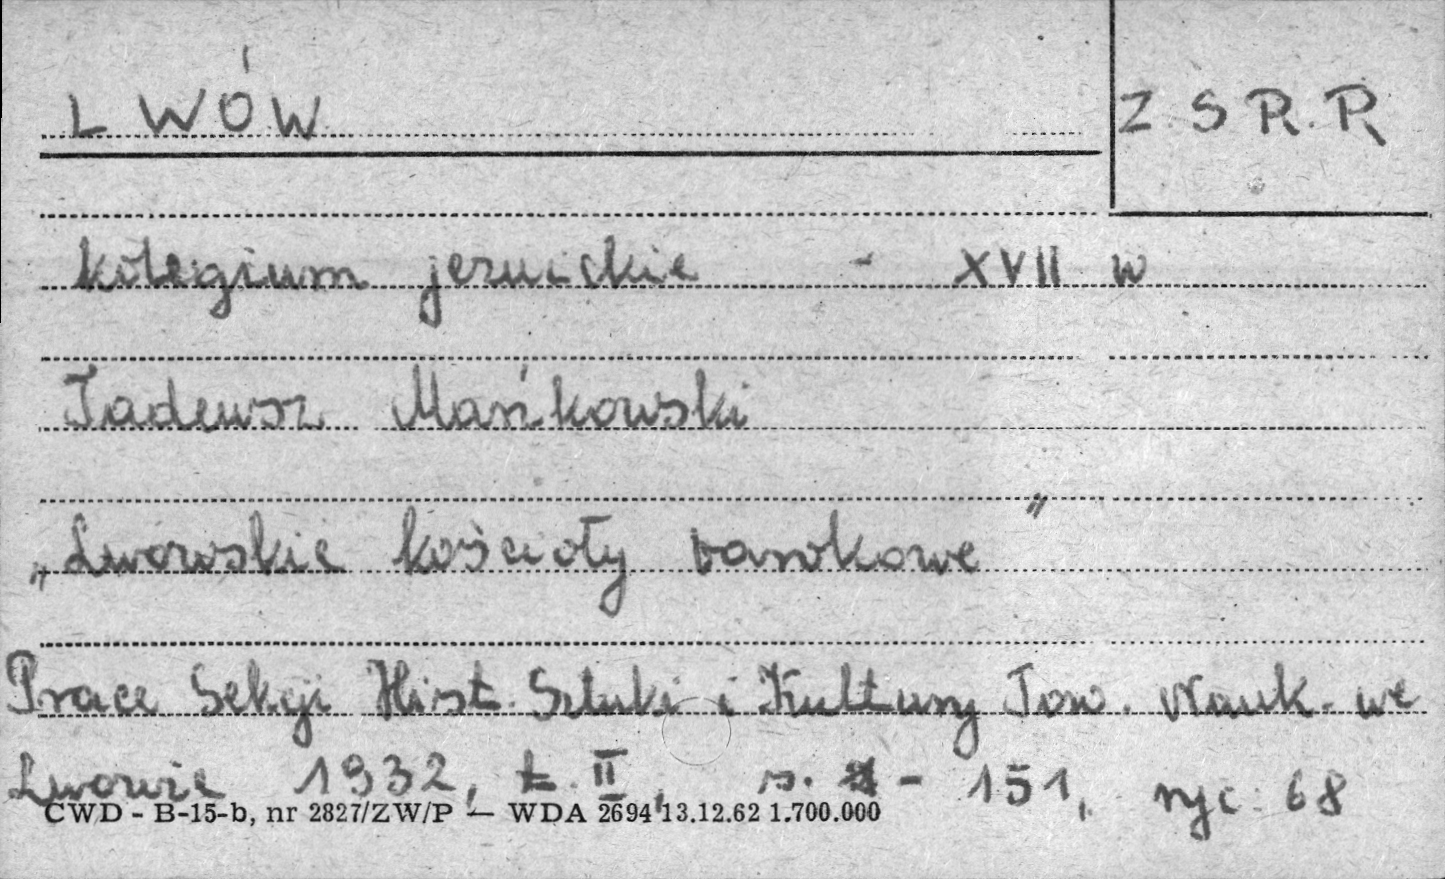 LWÓW
Z.S.R.R
kolegium jezuickie - XVII w
Tadeusz Mańkowski
„Lwowskie kościoły barokowe"
Prace Sekcji Hist. Sztuki i Kultury Tow. Nauk. we
Lwowie 1932, t. II, s. - 151, ryc. 68
CWD - B-15-b, nr 2827/ZW/P — WDA 2694 13.12.62 1.700.000